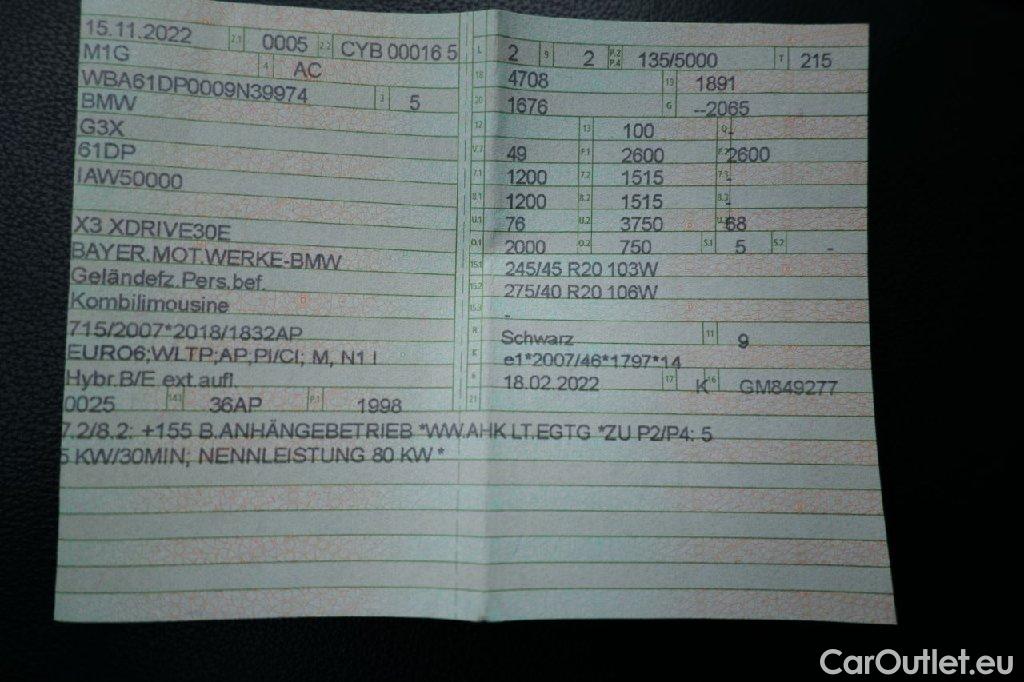 15.11.2022 2.1 0005 2.2 CYB 00016 5
M1G 4 AC
WBA61DP0009N39974 3 5
BMW
G3X
61DP
IAW50000
X3 XDRIVE30E
BAYER.MOT.WERKE-BMW
Geländefz.Pers.bef.
Kombilimousine
715/2007*2018/1832AP
EURO6;WLTP;AP;PI/CI; M, N1 I
Hybr.B/E ext.aufl.
0025 14.1 36AP P.1 1998
L 2 9 2 P.2 P.4 135/5000 T 215
18 4708 19 1891
20 1676 G --2065
12 13 100 Q -
V.7 49 F.1 2600 F.2 2600
7.1 1200 7.2 1515 7.3 -
8.1 1200 8.2 1515 8.3 -
U.1 76 U.2 3750 U.3 68
O.1 2000 O.2 750 S.1 5 S.2 -
15.1 245/45 R20 103W
15.2 275/40 R20 106W
15.3 -
R Schwarz 11 9
K e1*2007/46*1797*14
6 18.02.2022 17 K 16 GM849277
21
7.2/8.2: +155 B.ANHÄNGEBETRIEB *WW.AHK LT.EGTG *ZU P2/P4: 5
5 KW/30MIN; NENNLEISTUNG 80 KW *
CarOutlet.eu